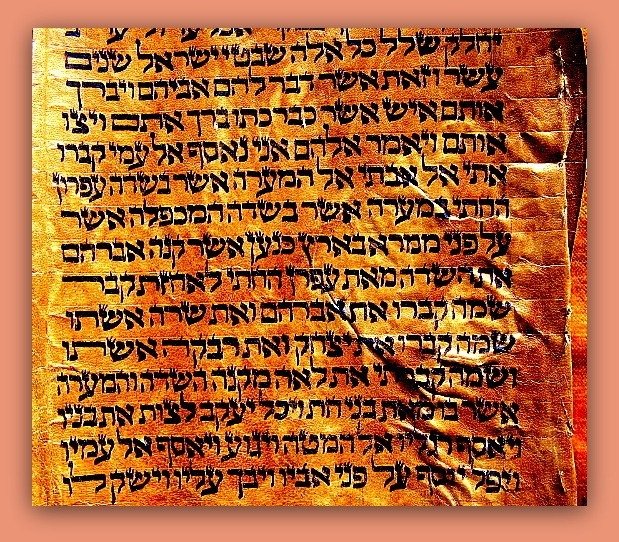 יחלק שלל כל אלה שבטי ישראל שנים
עשר וזאת אשר דבר להם אביהם ויברך
אותם איש אשר כברכתו ברך אתם ויצו
אותם ויאמר אלהם אני נאסף אל עמי קברו
אתי אל אבתי אל המערה אשר בשדה עפרון
החתי במערה אשר בשדה המכפלה אשר
על פני ממרא בארץ כנען אשר קנה אברהם
את השדה מאת עפרן החתי לאחזת קבר
שמה קברו את אברהם ואת שרה אשתו
שמה קברו את יצחק ואת רבקה אשתו
ושמה קברתי את לאה מקנה השדה והמערה
אשר בו מאת בני חת ויכל יעקב לצות את בניו
ויאסף רגליו אל המטה ויגוע ויאסף אל עמיו
ויפל יוסף על פני אביו ויבך עליו וישק לו